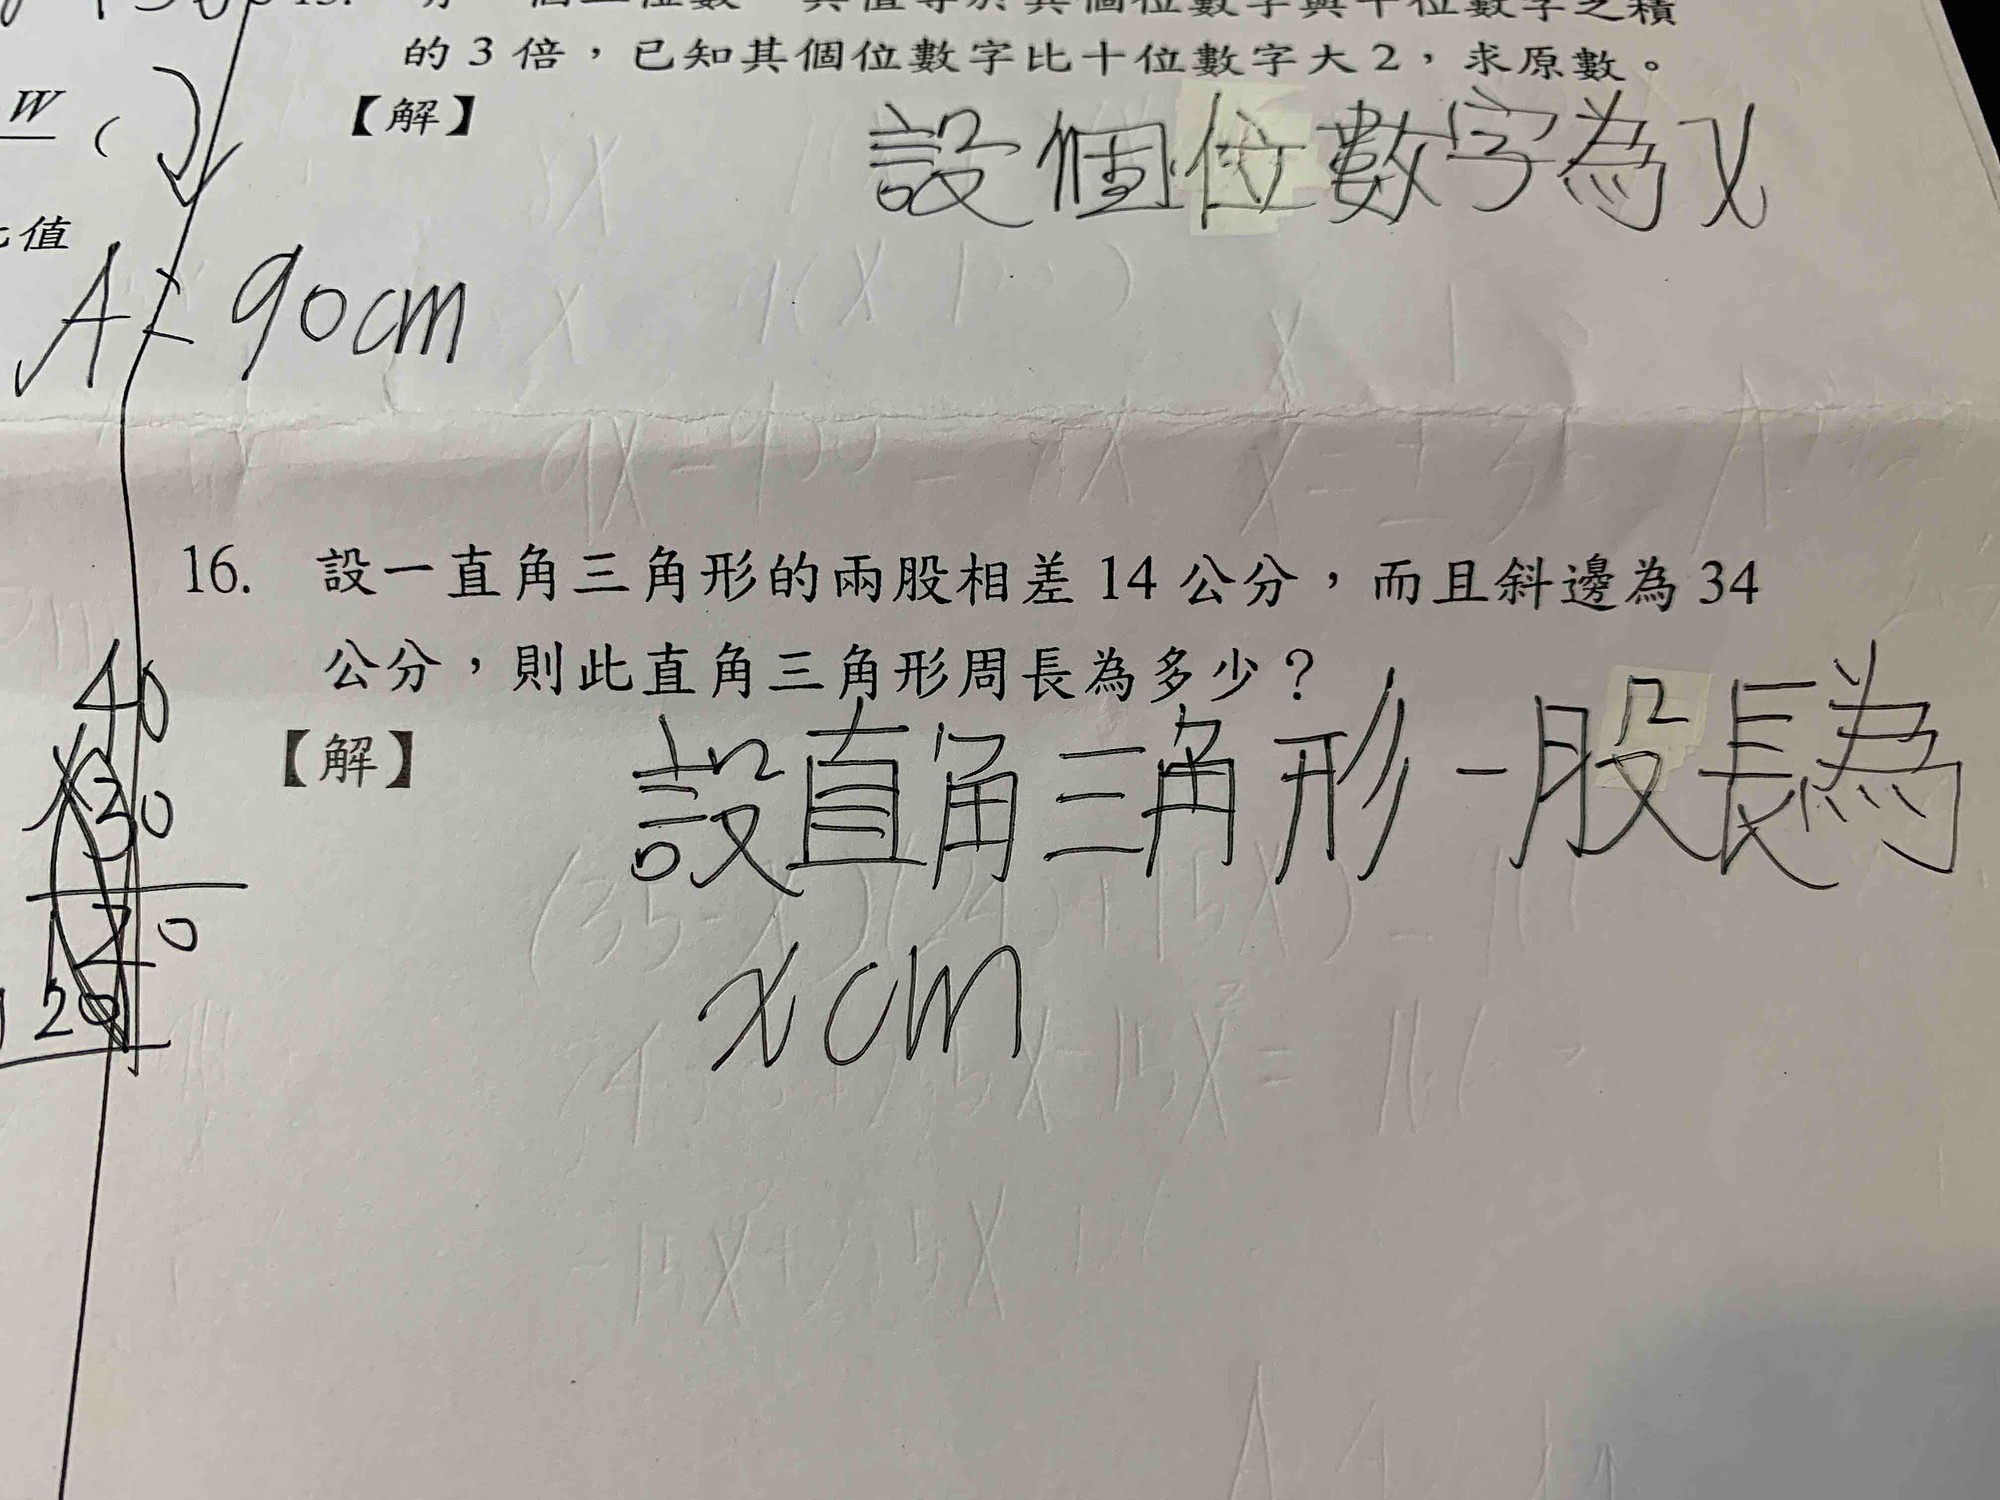 15. 有一個二位數，其值等於其個位數字與十位數字之積
的3倍，已知其個位數字比十位數字大2，求原數。
W
【解】
設個位數字為x
值
A= 90cm
16. 設一直角三角形的兩股相差14公分，而且斜邊為34
公分，則此直角三角形周長為多少？
40
【解】
設直角三角形一股長為
30
xcm
120
20